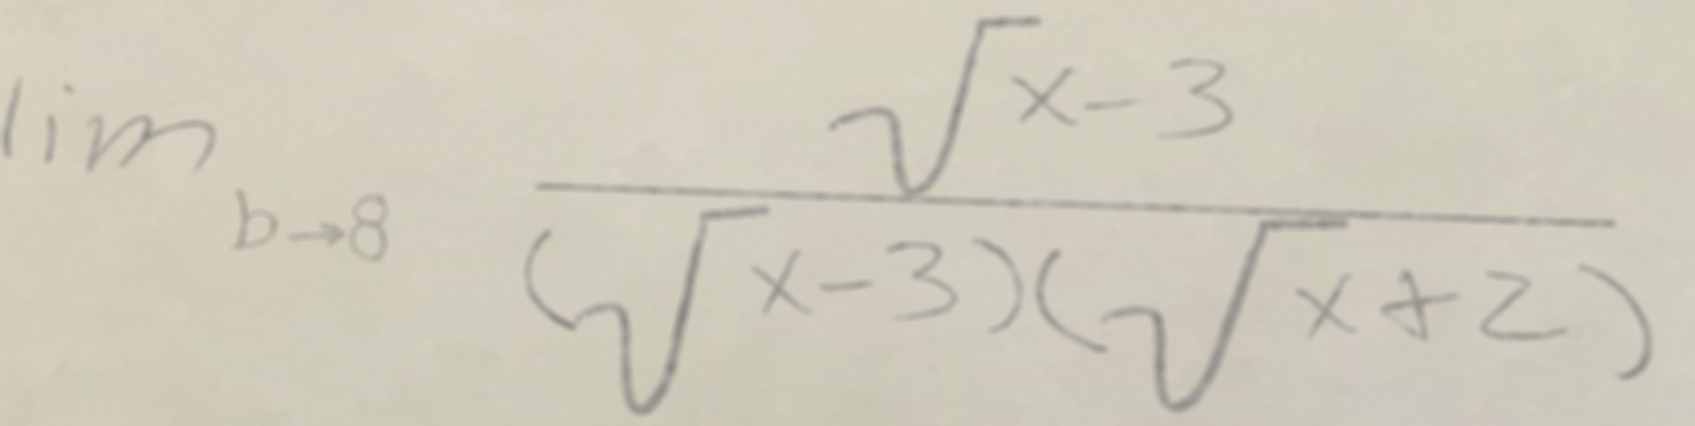 lim b→8 √x-3 / (√x-3)(√x+2)